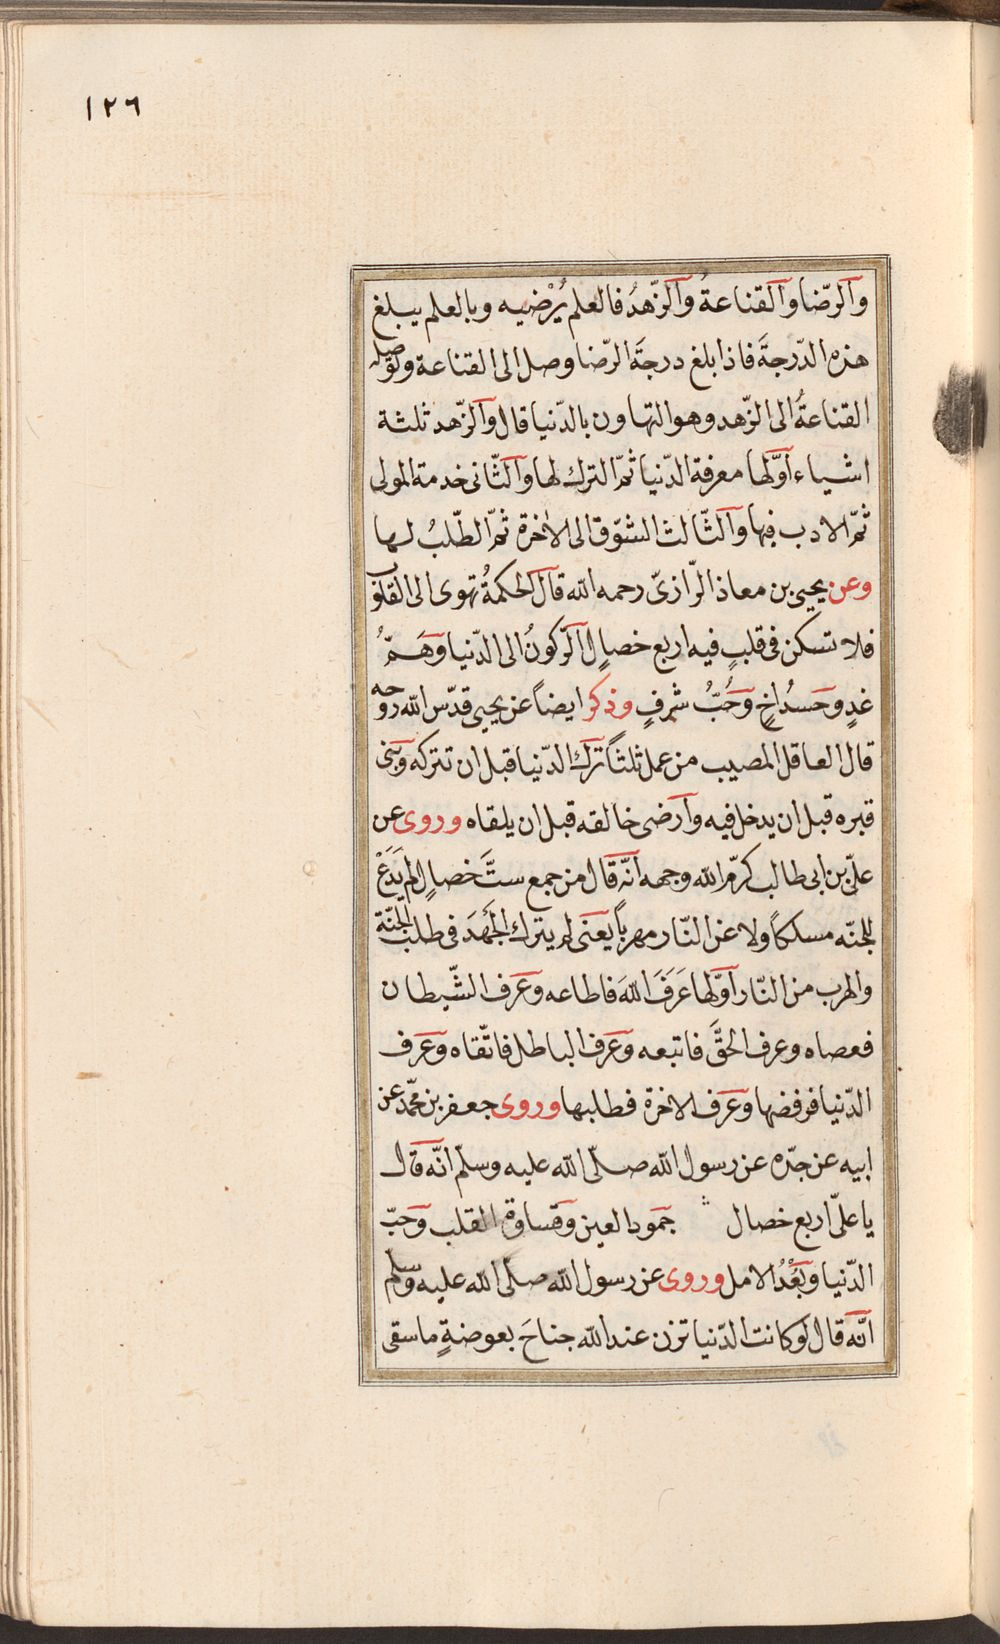 ١٢٦
والرّضا والقناعةُ والزّهدُ فالعلم يُرْضيه وبالعلم يبلغ
هذه الدّرجةَ فاذا بلغ درجةَ الرّضا وصل الى القناعة وتوصله
القناعةُ الى الزّهد وهو التهاون بالدّنيا قال والزّهد ثلثة
اشياء اوّلها معرفة الدّنيا ثمّ الترك لها والثّانى خدمة المولى
ثمّ الادب فيها والثّالث الشّوق الى الاخرة ثمّ الطّلبُ لها
وعن يحيى بن معاذ الرّازىّ رحمه الله قال الحكمةُ تهوى الى القلوب
فلا تسكن فى قلبٍ فيه اربع خصالٍ الرّكونُ الى الدّنيا وهَمُّ
غدٍ وحَسدُ اخٍ وَحُبُّ شرفٍ وذكر ايضاً عن يحيى قدّس الله روحه
قال العاقل المصيب من عمل ثلثاً ترك الدّنيا قبل ان تتركه وبنى
قبره قبل ان يدخل فيه وارضى خالقه قبل ان يلقاه وروى عن
علىّ بن ابى طالب كرّم الله وجهه انّه قال من جمع ستَّ خصالٍ لم يَدَعْ
للجنّه مسلكاً ولا عن النّار مهرباً يعنى لم يترك الجَهدَ فى طلب الجنّة
والهرب من النّار اوّلها عَرَفَ اللهَ فاطاعه وعَرف الشّيطان
فعصاه وعرف الحقَّ فاتبعه وعَرف الباطل فاتّقاه وعَرف
الدّنيا فرفضها وعَرف الاخرة فطلبها وروى جعفر بن محمّد عن
ابيه عن جدّه عن رسول الله صلّى الله عليه وسلّم انّه قال
يا علىّ اربع خصال جمود العين وقساوة القلب وحبّ
الدّنيا وبُعْدُ الامل وروى عن رسول الله صلّى الله عليه وسلّم
انّه قال لو كانت الدّنيا تزن عند الله جناحَ بعوضةٍ ما سقى